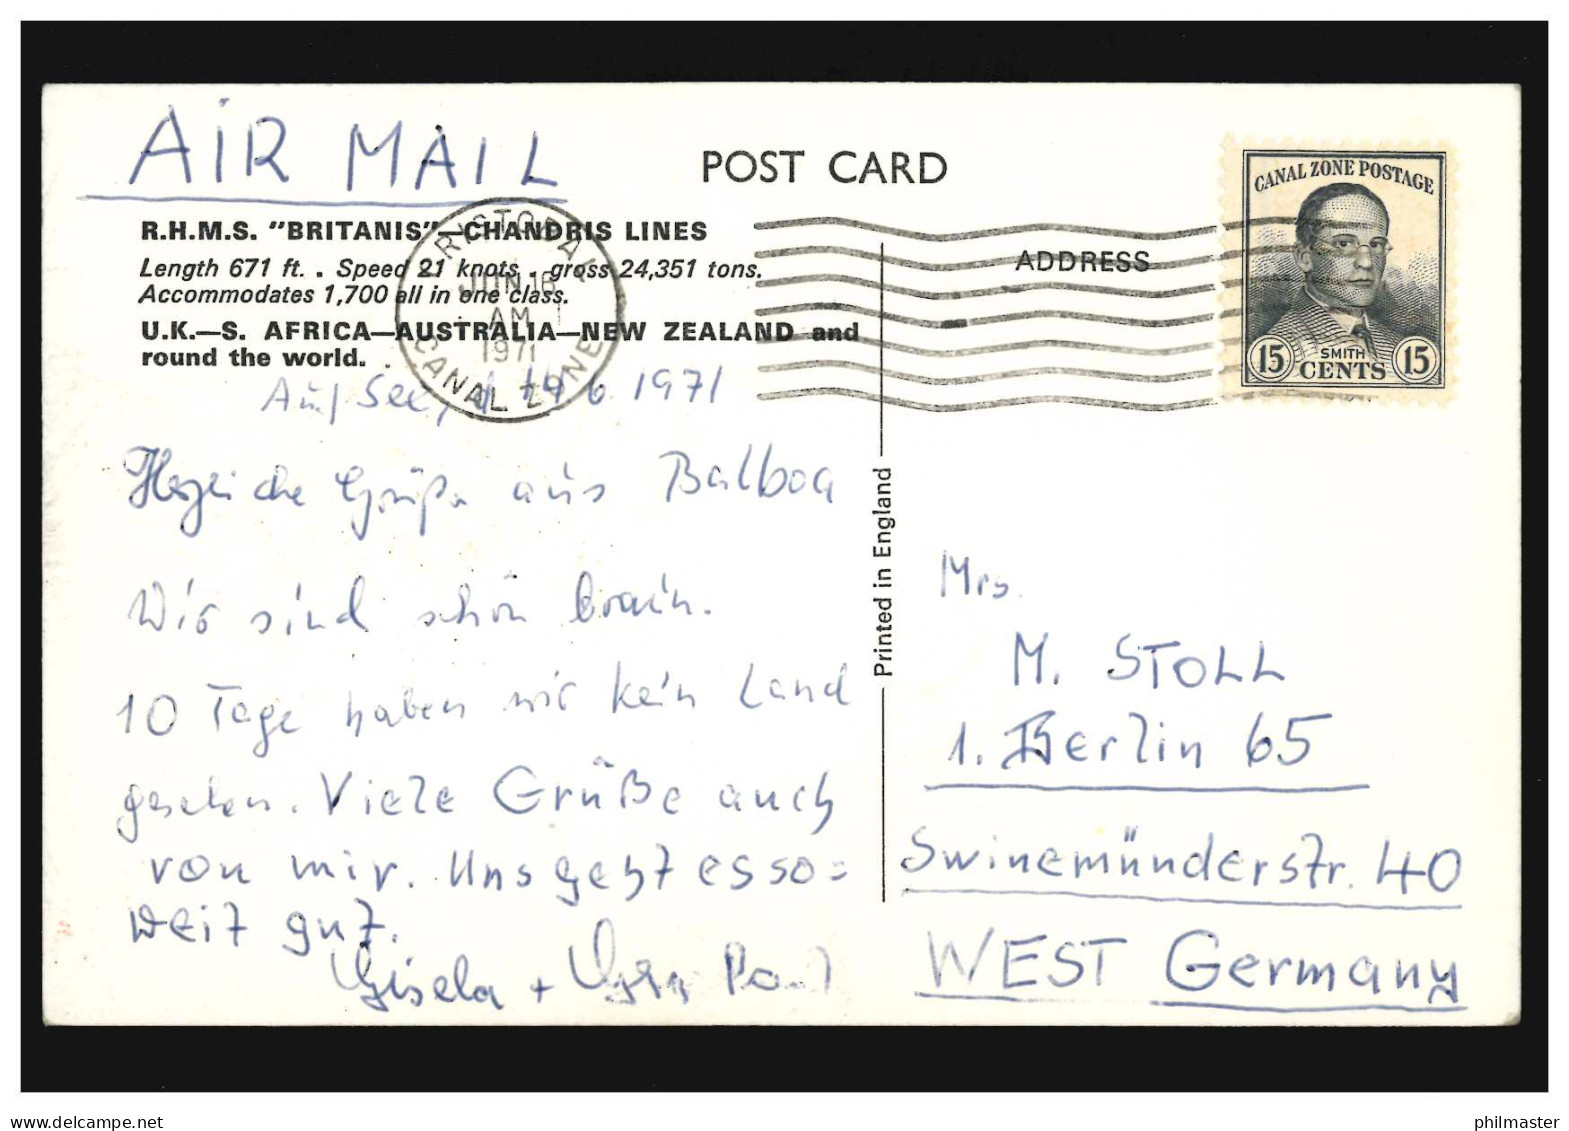 AIR MAIL
POST CARD
R.H.M.S. "BRITANIS"—CHANDRIS LINES
Length 671 ft. . Speed 21 knots . gross 24,351 tons.
Accommodates 1,700 all in one class.
U.K.—S. AFRICA—AUSTRALIA—NEW ZEALAND and
round the world.
CRISTOBAL
JUN 16
AM
1971
CANAL ZONE
ADDRESS
CANAL ZONE POSTAGE
SMITH
15 CENTS 15
Auf See, 6. 1971
Herzliche Grüße aus Balboa
Wir sind schön braun.
10 Tage haben wir kein Land
gesehen. Viele Grüße auch
von mir. Uns geht es so=
weit gut.
Gisela +
Printed in England
Mrs.
M. STOLL
1. Berlin 65
Swinemünderstr. 40
WEST Germany
delcampe.net
philmaster